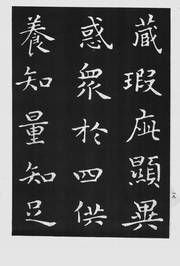 藏瑕疵顯異
惑眾於四供
養知量知足